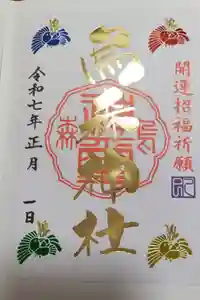 開運招福祈願
烏森神社
烏
森
令和七年正月 一日